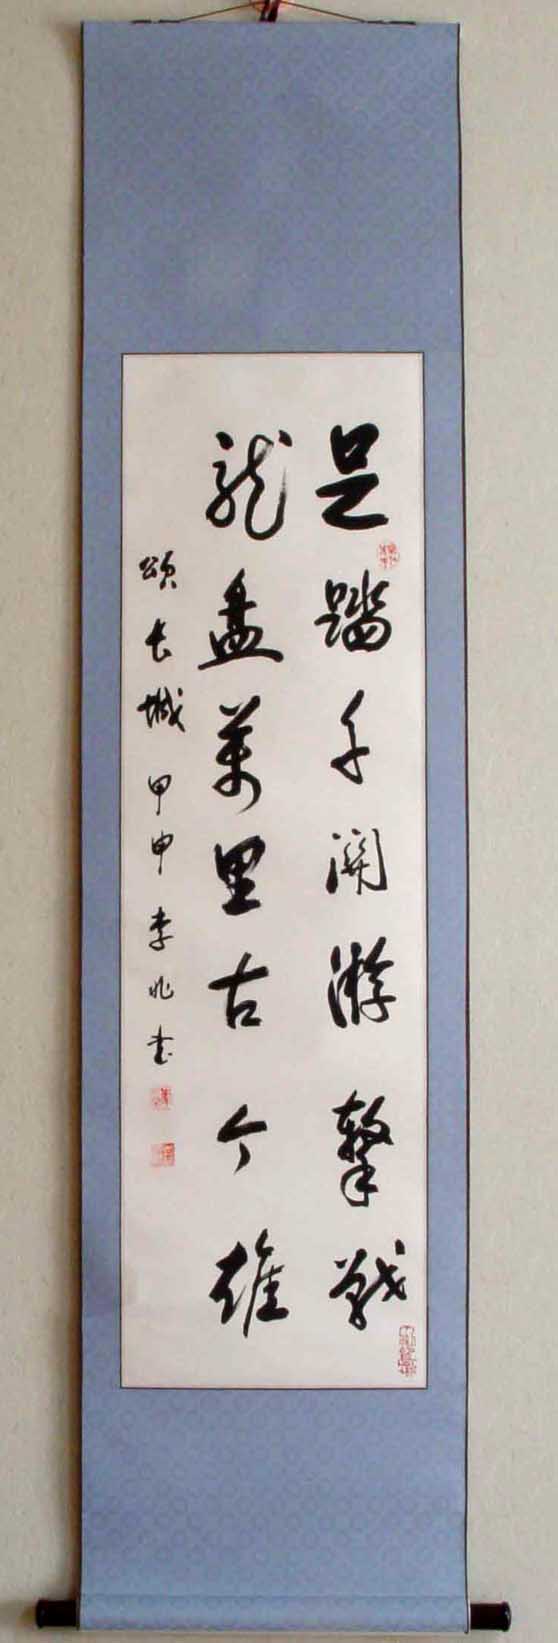 足踏千關游擊戰
龍盘萬里古今雄
頌長城 甲申 李兆书